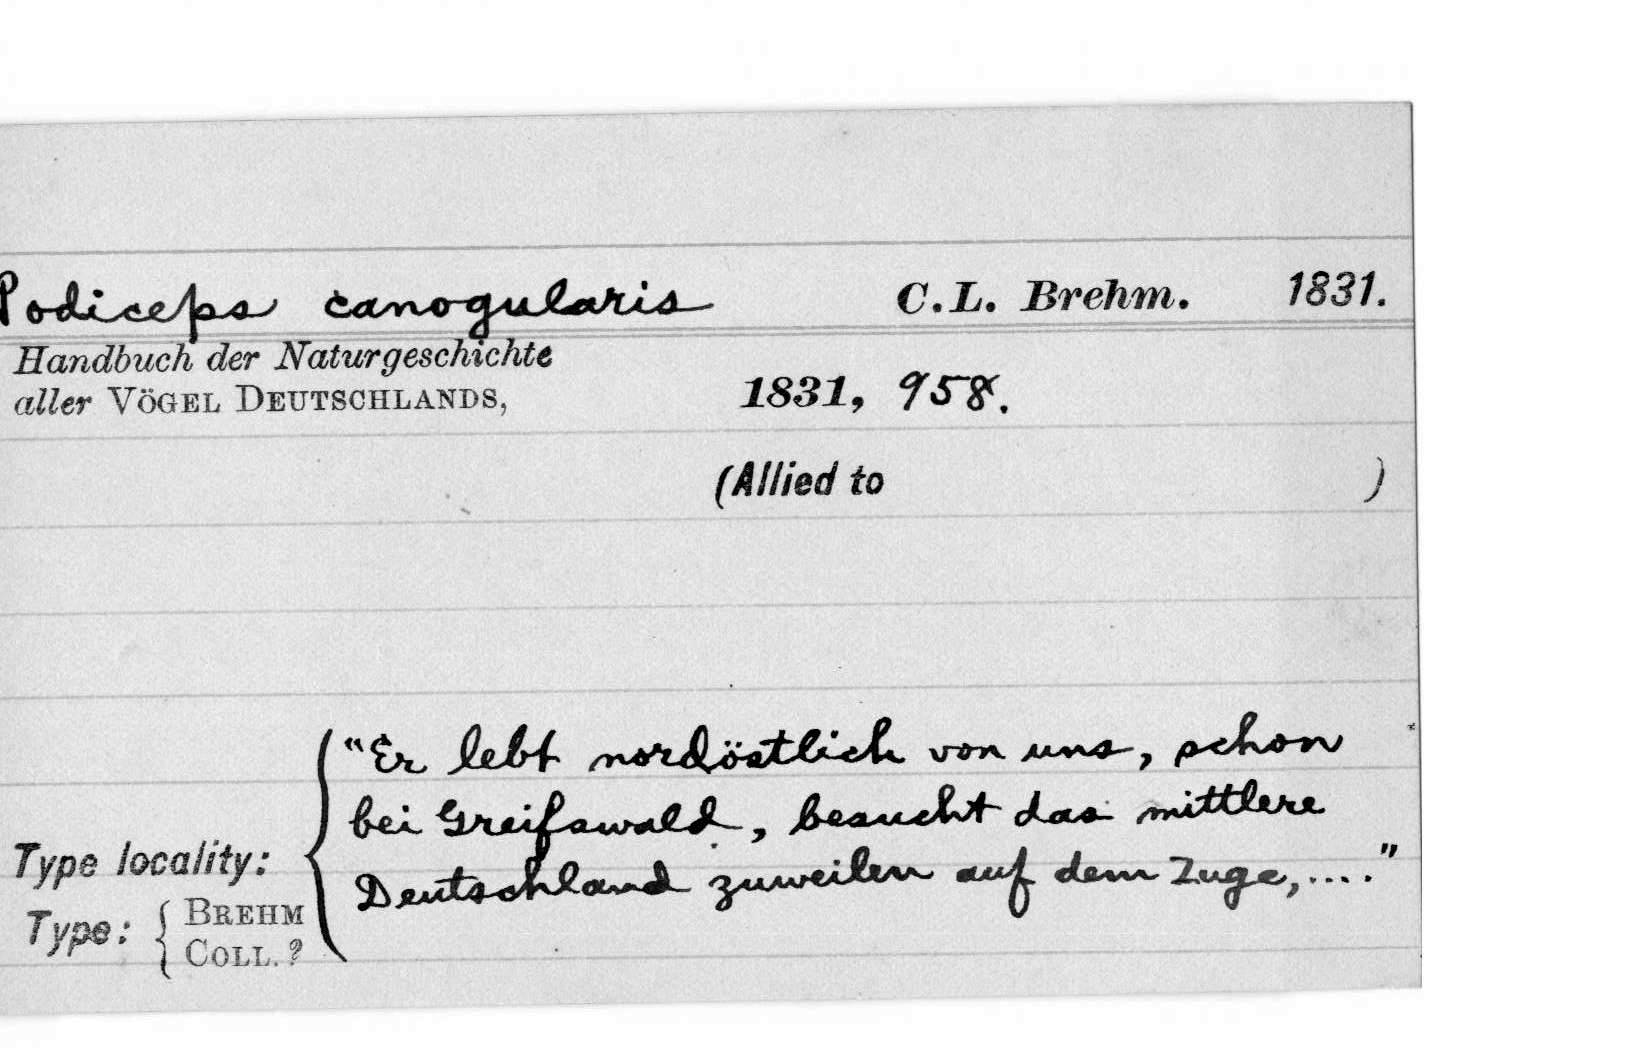 Podiceps canogularis C.L. Brehm. 1831.
Handbuch der Naturgeschichte
aller VÖGEL DEUTSCHLANDS, 1831, 958.
(Allied to )
"Er lebt nordöstlich von uns, schon
bei Greifswald, besucht das mittlere
Deutschland zuweilen auf dem Zuge,...."
Type locality:
Type: { BREHM
COLL. ?